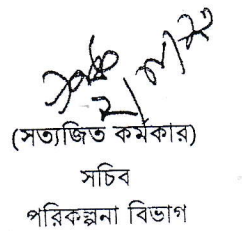 (সত্যজিত কর্মকার)
সচিব
পরিকল্পনা বিভাগ